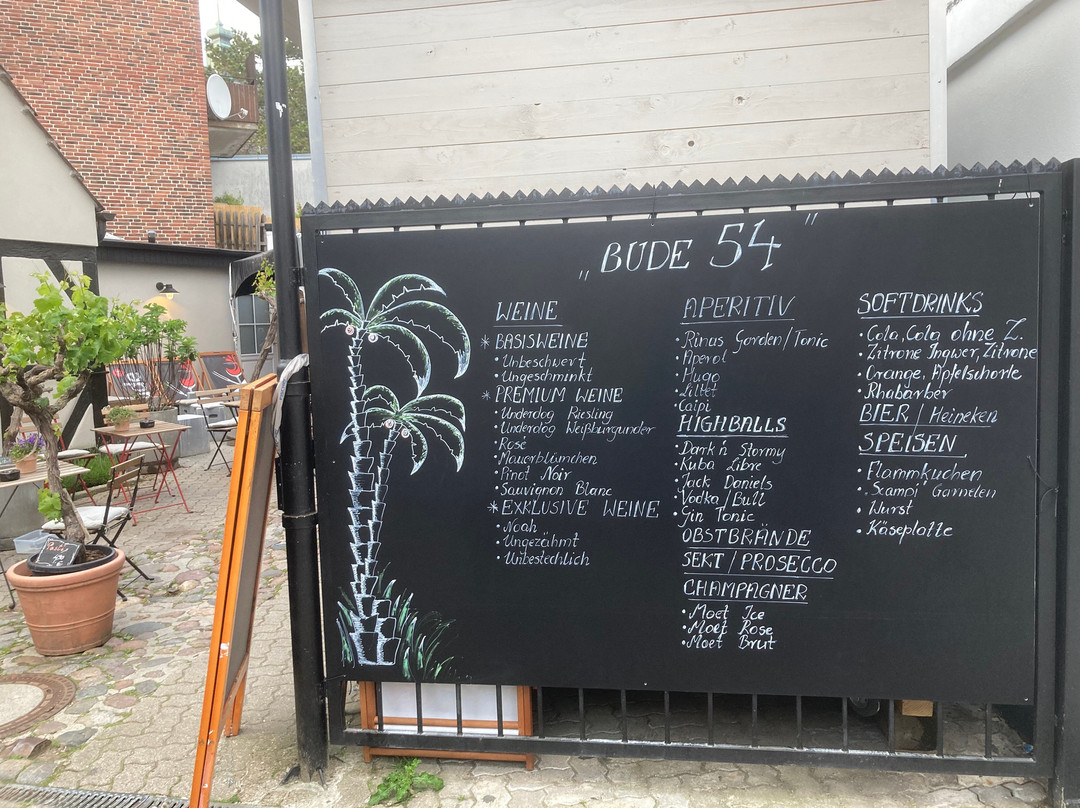 „BUDE 54"
WEINE
* BASISWEINE
• Unbeschwert
• Ungeschminkt
* PREMIUM WEINE
• Underdog Riesling
• Underdog Weißburgunder
• Rosé
• Mauerblümchen
• Pinot Noir
• Sauvignon Blanc
* EXKLUSIVE WEINE
• Noah
• Ungezähmt
• Unbestechlich
APERITIV
• Rinas Garden/Tonic
• Aperol
• Hugo
• Lillet
• Caipi
HIGHBALLS
• Dark'n Stormy
• Kuba Libre
• Jack Daniels
• Vodka/Bull
• Gin Tonic
OBSTBRÄNDE
SEKT / PROSECCO
CHAMPAGNER
• Moet Ice
• Moet Rose
• Moet Brut
SOFTDRINKS
• Cola, Cola ohne Z.
• Zitrone Ingwer, Zitrone
• Orange, Apfelschorle
• Rhabarber
BIER / Heineken
SPEISEN
• Flammkuchen
• Scampi Garnelen
• Wurst
• Käseplatte